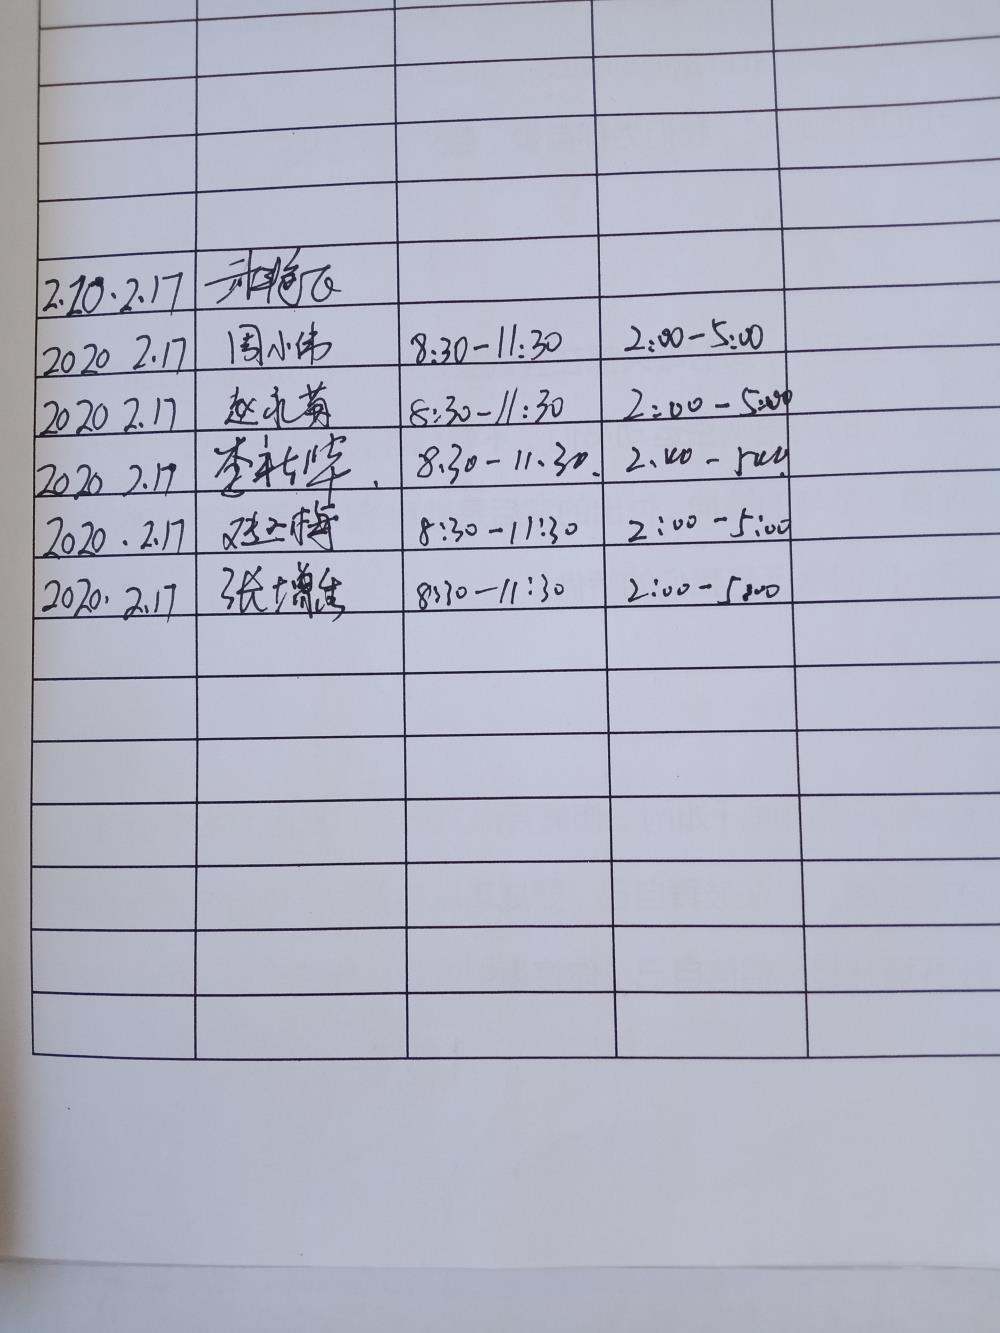 2.20.2.17
2020 2.17 周小伟 8:30-11:30 2:00-5:00
2020 2.17 赵永菊 8:30-11:30 2:00-5:00
2020 2.17 李 华. 8.30-11.30. 2.00-500.
2020.2.17 梅 8:30-11:30 2:00-5:00
2020.2.17 张增 8:30-11:30 2:00-5:00